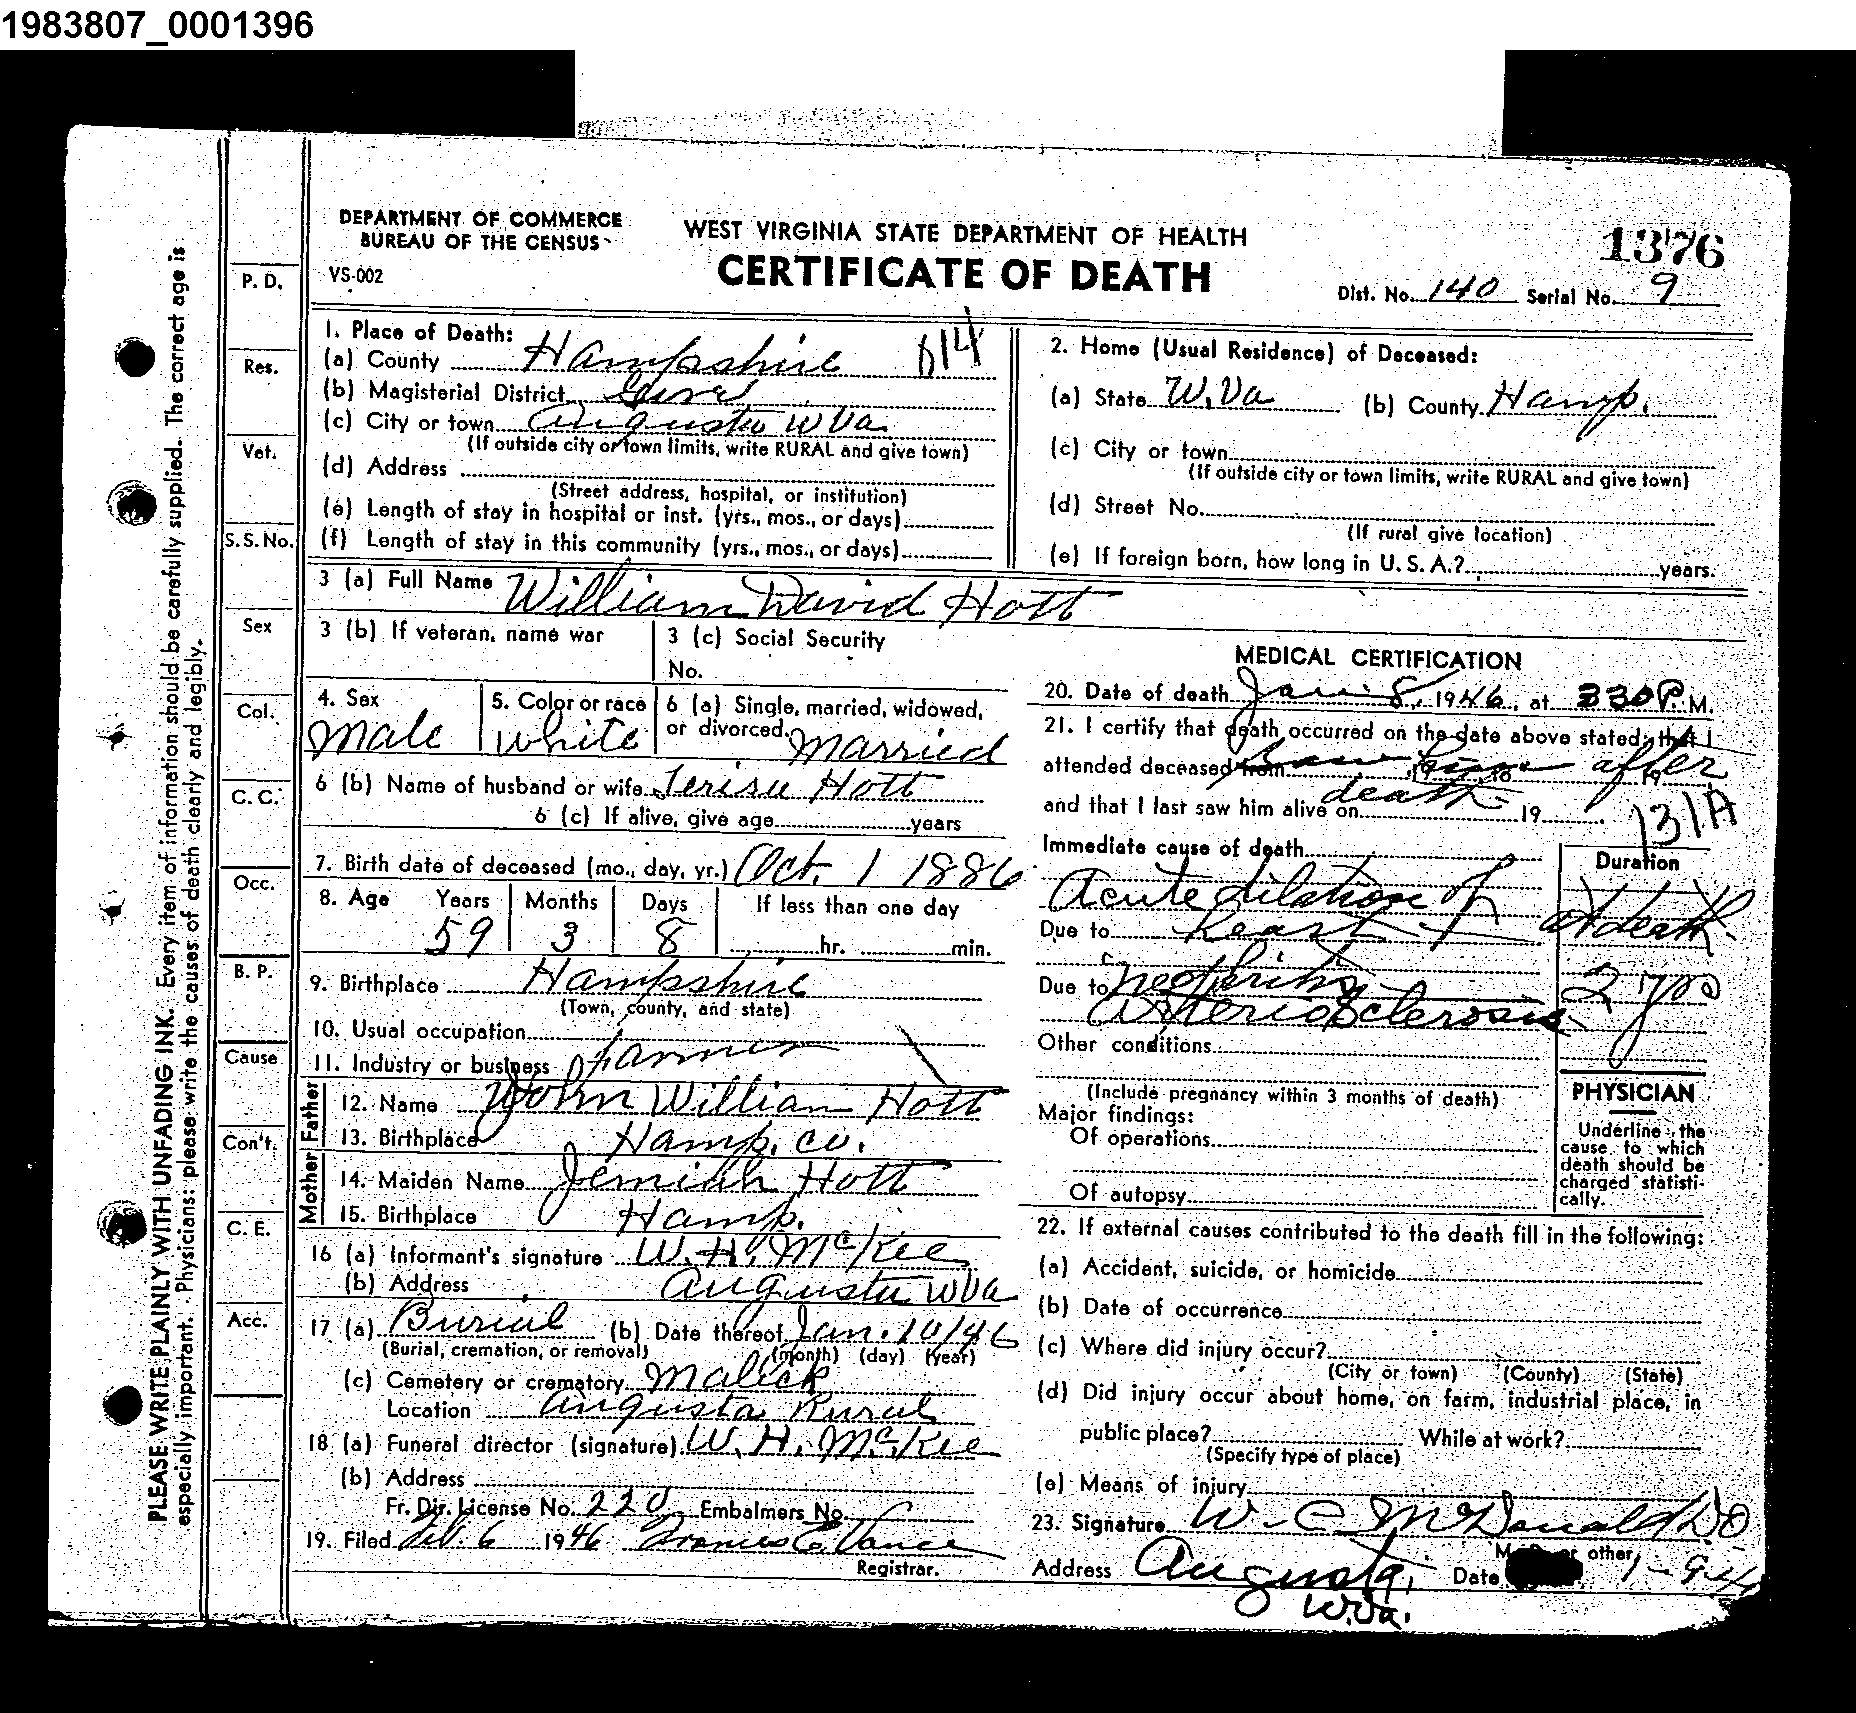 1983807_0001396
DEPARTMENT OF COMMERCE
BUREAU OF THE CENSUS
VS-002
WEST VIRGINIA STATE DEPARTMENT OF HEALTH
CERTIFICATE OF DEATH
1376
Dist. No. 140 Serial No. 9
PLEASE WRITE PLAINLY WITH UNFADING INK. Every item of information should be carefully supplied. The correct age is
especially important. Physicians: please write the causes of death clearly and legibly.
P. D.
Res.
Vet.
S. S. No.
Sex
Col.
C. C.
Occ.
B. P.
Cause
Con't.
C. E.
Acc.
1. Place of Death:
(a) County Hampshire 614
(b) Magisterial District
(c) City or town Augusta W Va
(If outside city or town limits, write RURAL and give town)
(d) Address
(Street address, hospital, or institution)
(e) Length of stay in hospital or inst. (yrs., mos., or days)
(f) Length of stay in this community (yrs., mos., or days)
2. Home (Usual Residence) of Deceased:
(a) State W. Va (b) County Hamp.
(c) City or town
(If outside city or town limits, write RURAL and give town)
(d) Street No.
(If rural give location)
(e) If foreign born, how long in U. S. A.? years.
3 (a) Full Name William David Hott
3 (b) If veteran, name war
3 (c) Social Security
No.
4. Sex
Male
5. Color or race
White
6 (a) Single, married, widowed,
or divorced. Married
6 (b) Name of husband or wife Hott
6 (c) If alive, give age years
7. Birth date of deceased (mo., day, yr.) Oct. 1 1886
8. Age Years Months Days If less than one day
59 3 8 hr. min.
9. Birthplace Hampshire
(Town, county, and state)
10. Usual occupation
11. Industry or business Farmer
Father
12. Name John William Hott
13. Birthplace Hamp. Co.
Mother
14. Maiden Name Jemiah Hott
15. Birthplace Hamp.
16 (a) Informant's signature W. H. McKee
(b) Address Augusta W Va
17 (a) Burial (b) Date thereof Jan. 10/46
(Burial, cremation, or removal) (month) (day) (year)
(c) Cemetery or crematory Malick
Location Augusta Rural
18 (a) Funeral director (signature) W. H. McKee
(b) Address
Fr. Dir. License No. 220 Embalmers No.
19. Filed Feb. 6 1946 Frances C. Vance
Registrar.
MEDICAL CERTIFICATION
20. Date of death Jan. 8, 1946, at 330 P. M.
21. I certify that death occurred on the date above stated; that I
attended deceased from saw him after
death
and that I last saw him alive on 19
131A
Immediate cause of death
Duration
Acute dilation of
Due to heart at death.
Due to Nephritis
Arteriosclerosis
Other conditions
(Include pregnancy within 3 months of death)
Major findings:
Of operations
Of autopsy
PHYSICIAN
Underline the
cause to which
death should be
charged statisti-
cally.
22. If external causes contributed to the death fill in the following:
(a) Accident, suicide, or homicide
(b) Date of occurrence
(c) Where did injury occur?
(City or town) (County) (State)
(d) Did injury occur about home, on farm, industrial place, in
public place? While at work?
(Specify type of place)
(e) Means of injury
23. Signature W. C. McDonald DO
or other
Address Augusta, Date
W. Va.